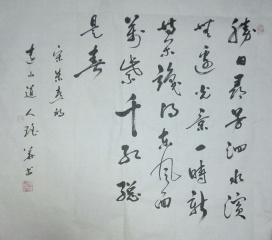 勝日尋芳泗水濱
無邊光景一時新
等閑識得東風面
萬紫千紅總
是春
宋朱熹詩
山道人
書